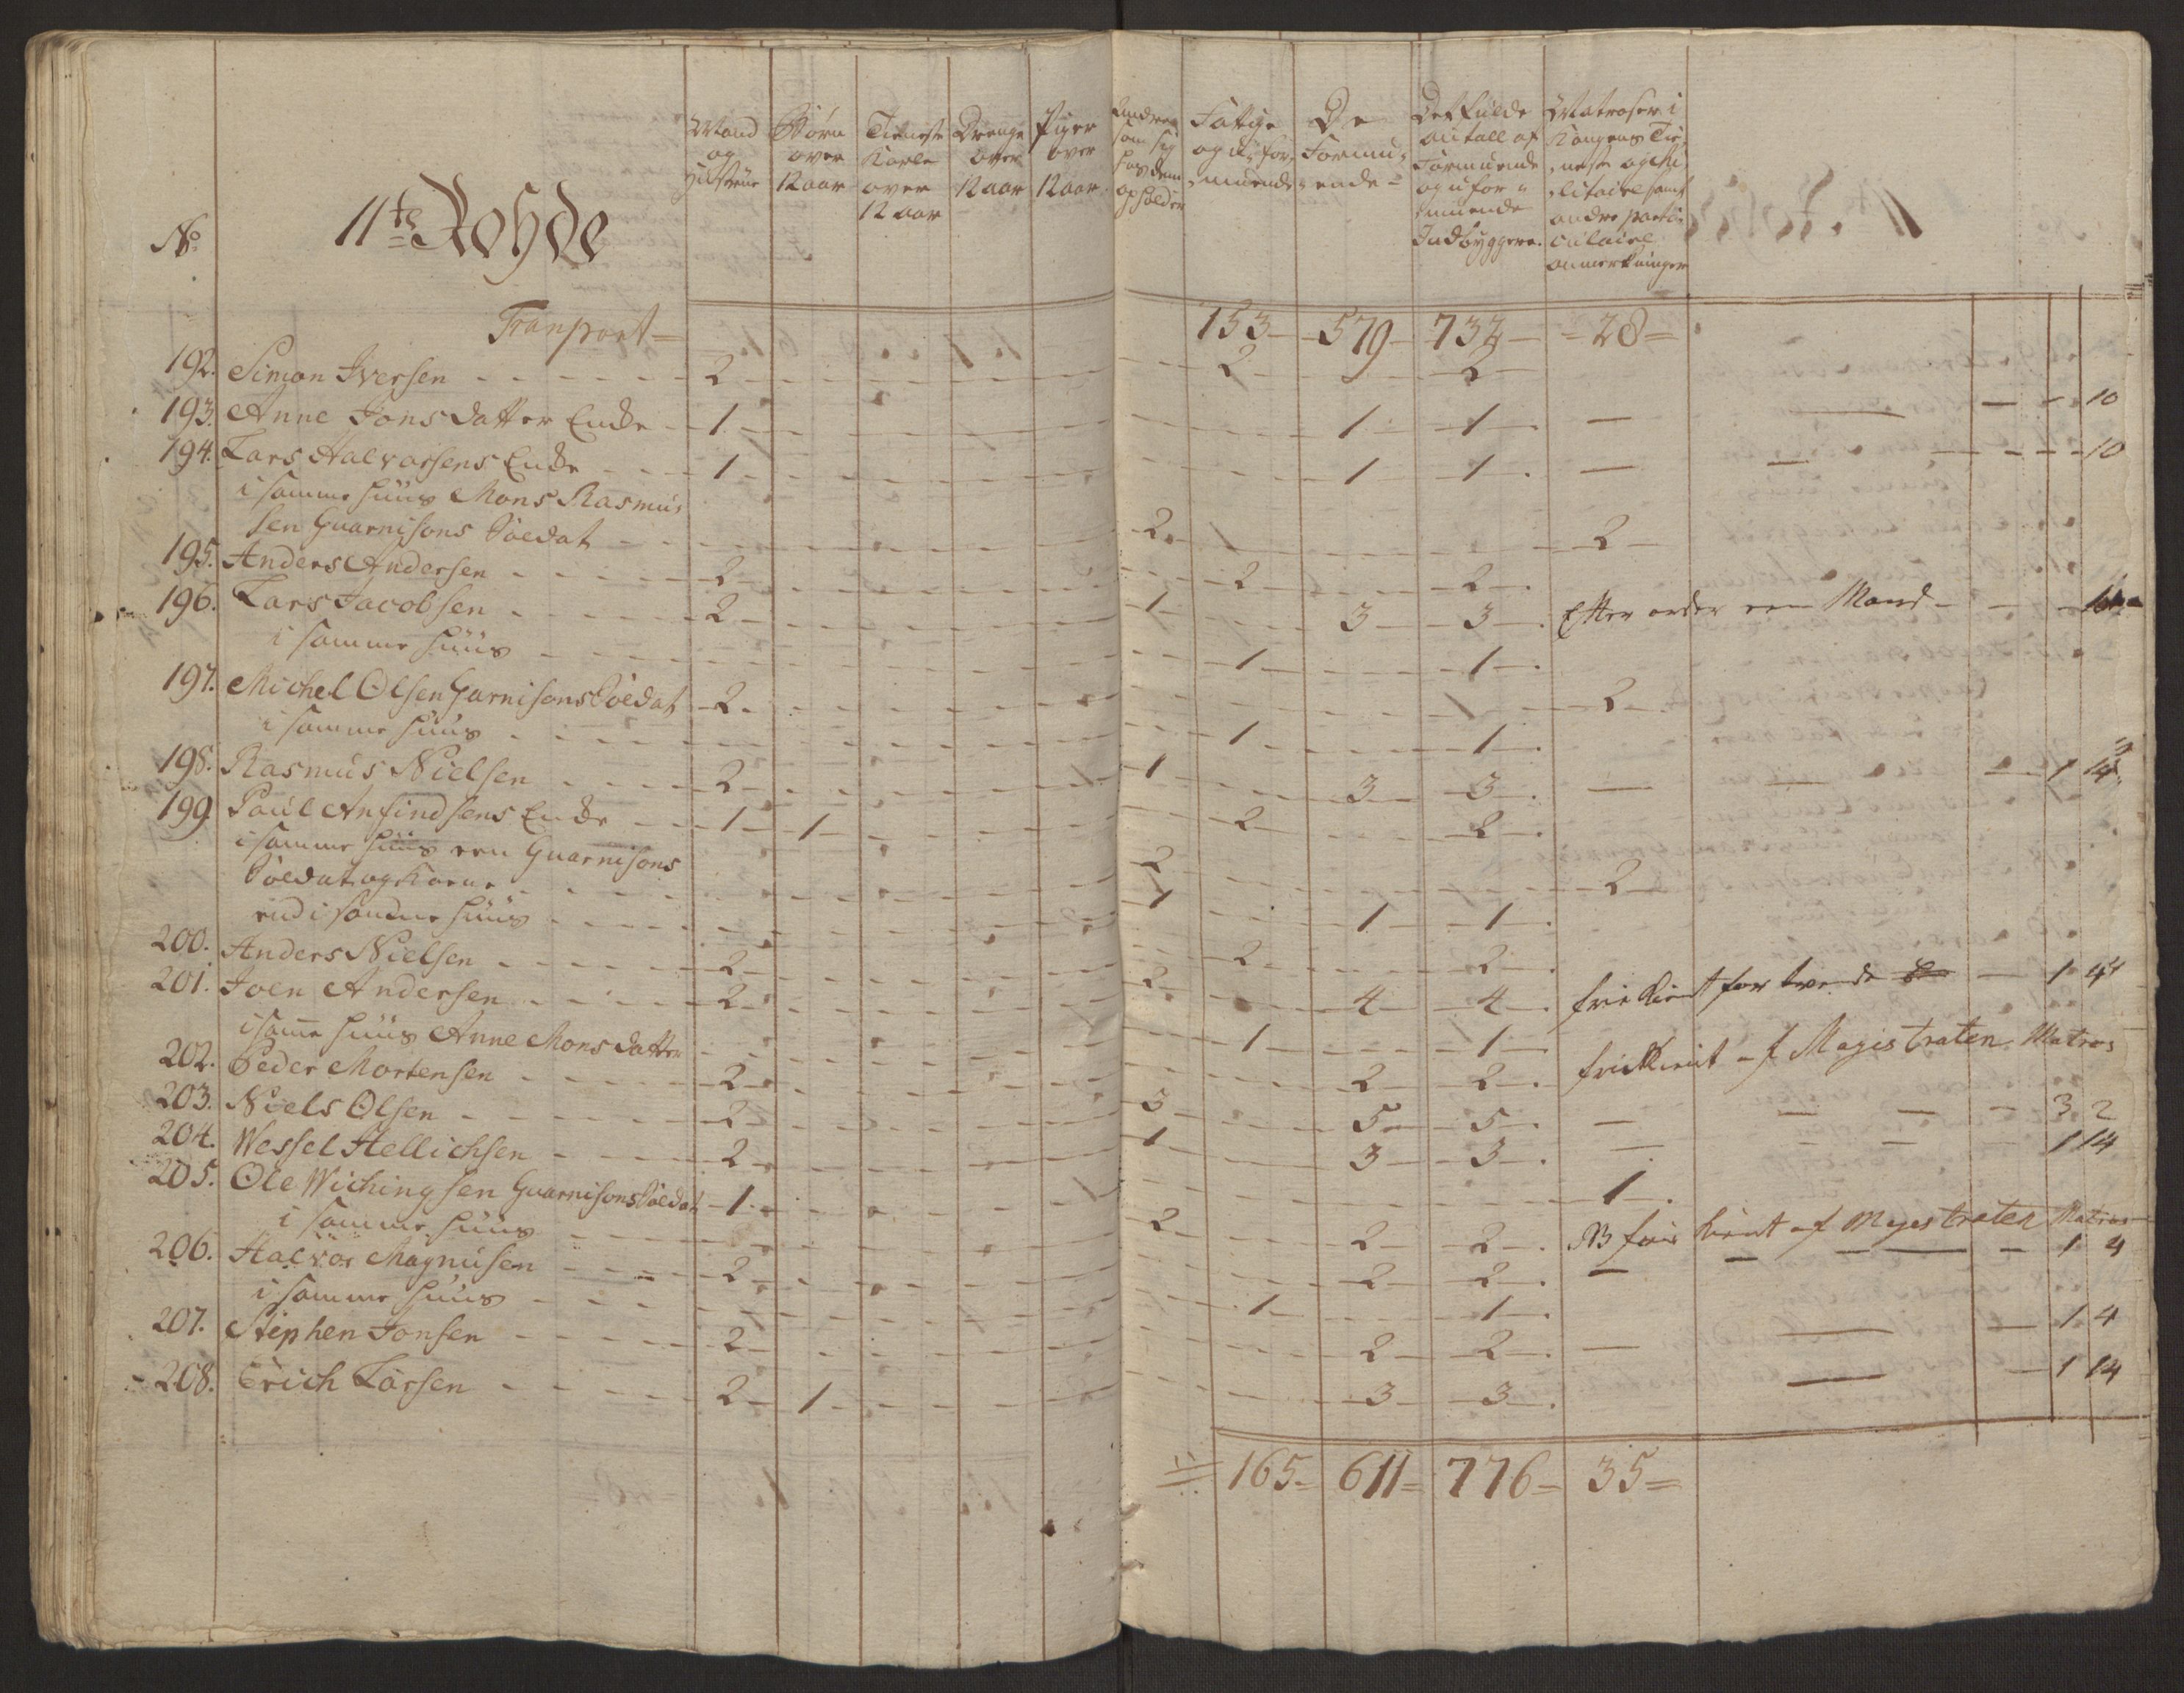 No
11te Rohde
Mand og Hustrue
Børn over 12 aar
Tieneste Karle over 12 aar
Drenge over 12 aar
Piger over 12 aar
Andre som sig hos dem opholder
Fattige og uformuende
De Formuende
Det fulde antall af Formuende og uformuende Indbyggere.
Matroser i Kongens Tieneste og Militaire samt andre particulaire anmerkninger
Transport 153 579 732 28
192. Simon Iversen 2 2 2
193. Anne Jonsdatter Encke 1 1 1 10
194. Lars Halvorsens Encke 1 1 1 10
i samme huus Mons Rasmu
sen Guarnisons Soldat 2 2
195. Anders Andersen 2 2 2
196. Lars Jacobsen 2 1 3 3 Efter order een Mand
i samme huus 1 1
197. Michel Olsen Garnisons Soldat 2 2
i samme huus 1 1
198. Rasmus Nielsen 2 1 3 3 1 14
199 Paul Anfindsens Encke 1 1 2 2
i samme huus een Guarnisons
Soldat og Kone 2 2
end i samme huus 1 1 1
200. Anders Nielsen 2 2 2
201. Joen Andersen 2 2 4 4 frie Kient for tvende 1 4
i samme huus Anne Monsdatter 1 1
202. Peder Mortensen 2 2 2 frie Kient af Magistraten Matros
203. Niels Olsen 2 3 5 5 3 2
204. Wessel Hellichsen 2 1 3 3 1 14
205. Ole Wichingsen Guarnisons Soldat 1 1
i samme huus 2 2 2 NB frie Kient af Magistraten Matros
206. Halvor Magnusen 2 2 2 1 4
i samme huus 1 1
207. Stephen Jonsen 2 2 2 1 4
208. Erich Larsen 2 1 3 3 1 14
165 611 776 35